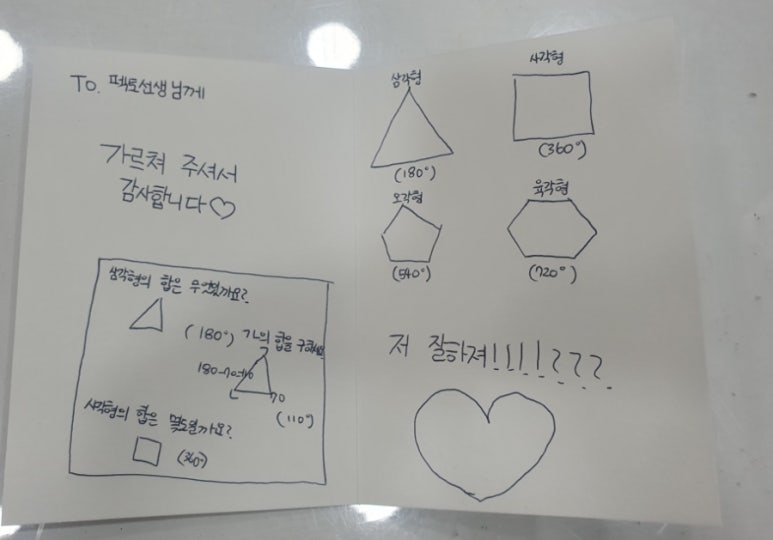 To. 펙토선생님께
가르쳐 주셔서
감사합니다♡
삼각형의 합은 무엇일까요?
(180°)
ㄱ,ㄴ의 합을 구하세요
180-70=110
ㄱ
ㄴ
70
(110°)
사각형의 합은 몇도일까요?
(360°)
삼각형
(180°)
사각형
(360°)
오각형
(540°)
육각형
(720°)
저 잘하져!!!!???